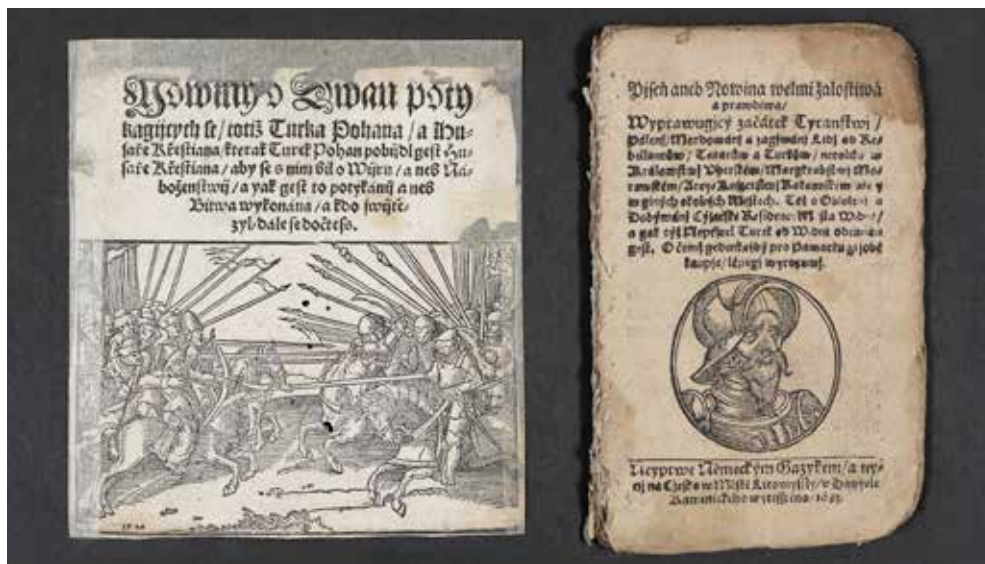 Nowiny o Dwau poty
kagijcych se / totiž Turka Pohana / a Hu-
saře Křestiana / kterak Turek Pohan pobijdl gest Hu-
saře Křestiana / aby se s nim bil o Wijru / a neb Ná-
boženstwij / a yak gest to potykánij a neb
Bitwa wykonána / a kdo swijtě-
zyl / dále se dočteš.
Pijseň aneb Nowina welmi žalostiwá
a prawdiwá /
Wyprawugjcý začátek Tyranstwj /
Pálenj / Mordowánj a zagjmánj Lidj od Re-
bellanůw / Tatarůw a Turkůw / w
Králowstwj Vherském / Margkrabstwj Mo-
rawském / Rakauském a y
w giných okolnjch Mjstech. Též o
Dobýwánj Cýsařské Residenc
a gak týž Nepřjtel Turek od Wjdně
gest. O čemž gedenkaždý pro Památku sobě
kaupjc / lépegi wyrozumj.
Neyprwe Německým Gazykem / a ny-
nj na Česko w Městě Litomyssli / v
Kamenického wytisstěno.